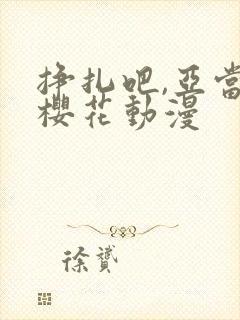 挣扎吧,亞當
櫻花動漫
徐贇